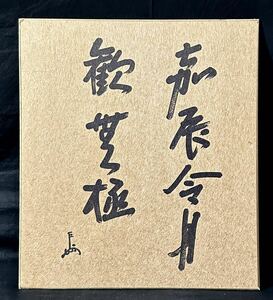 嘉辰令月
歓無極